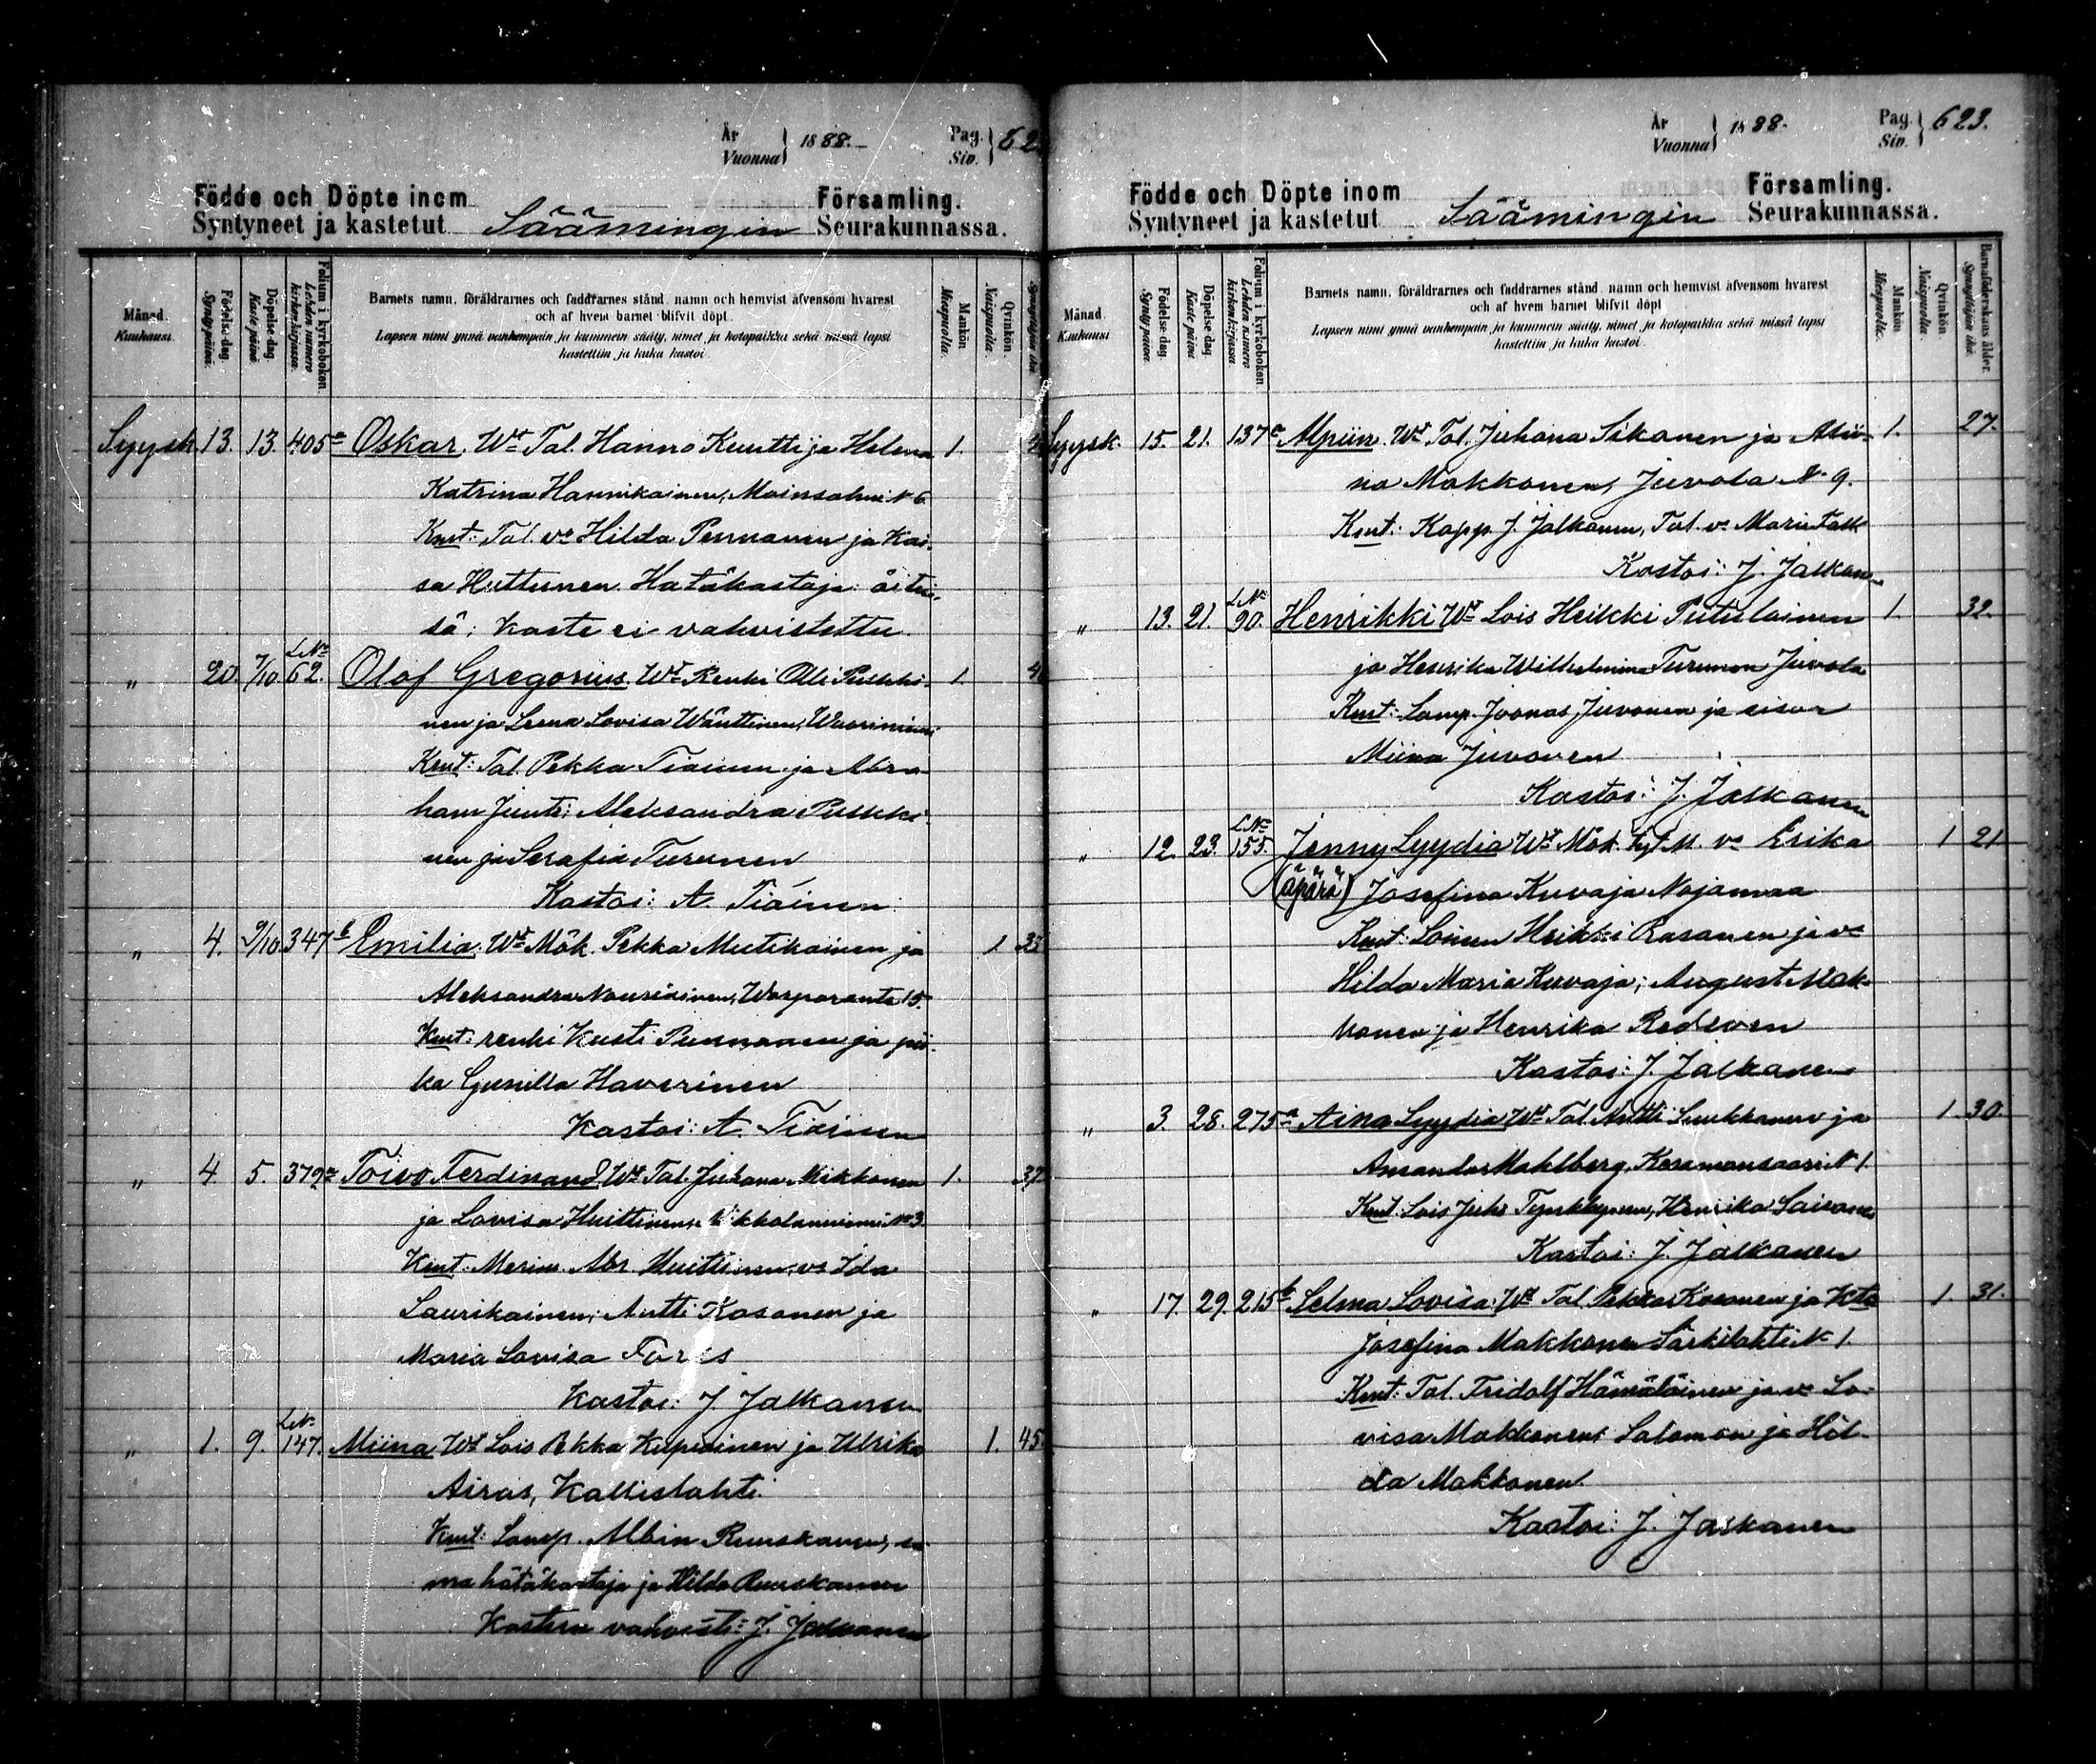 År
Vuonna } 1888. Pag.
Siv. } 62
Födde och Döpte inom Församling.
Syntyneet ja kastetut Säämingin Seurakunnassa.
Månad. Kuukausi.
Födelse-dag. Syntypäivä.
Döpelse-dag. Kaste-päivä.
Folium i kyrkoboken. Lehden numero kirkonkirjassa.
Barnets namn, föräldrarnes och faddrarnes stånd, namn och hemvist äfvensom hvarest
och af hvem barnet blifvit döpt.
Lapsen nimi ynnä vanhempain ja kummein sääty, nimet ja kotopaikka sekä missä lapsi
kastettiin ja kuka kastoi.
Mankön. Miespuolia.
Qvinkön. Naispuolia.
Syysk. 13. 13. 405a Oskar. Wt Tal. Hanno Kuutti ja Helena 1.
Katrina Hannikainen, Moinsalmi N 6.
Kmt: Tal. vo Hilda Pennanen ja Kai-
sa Huttunen. Hätäkastaja: äitin-
sä; kaste ei vahvistettu.
" 20. 7/10 LNo 62. Olof Gregorius. Wt Renki Olli Puikki- 1. 4
nen ja Leena Lovisa Wänttinen, Wuoriniemi
Kmt: Tal. Pekka Tiainen ja Abra-
ham Junti; Aleksandra Puikki-
nen ja Serafia Turunen
Kastoi: A. Tiainen.
" 4. 9/10 347b Emilia. Wt Mök. Pekka Mutikainen ja 1 23
Aleksandra Nousiainen, Warparanta 15.
Kmt: renki Kusti Pennanen ja pii-
ka Gunilla Haverinen
Kastoi: A. Tiainen
" 4. 5. 379a Toivo Ferdinand Wt Tal. Juhana Mikkonen 1. 37
ja Lovisa Huittinen, Pikkolanniemi No 3.
Kmt. Merim. Abr. Huittinen, vo Ida
Laurikainen; Antti Kosonen ja
Maria Lovisa Fors
Kastoi: J. Jalkanen
" 1. 9. LNo 147. Miina Wt Lois Pekka Kupiainen ja Ulrika 1. 45
Airas, Kallislahti.
Kmt: Lamp. Albin Ruuskanen, sa-
ma hätäkastaja ja Hilda Ruuskanen
Kasteen vahvisti: J. Jalkanen
År
Vuonna } 1888. Pag.
Siv. } 623.
Födde och Döpte inom Församling.
Syntyneet ja kastetut Säämingin Seurakunnassa.
Månad. Kuukausi
Födelse-dag. Syntypäivä.
Döpelse-dag. Kaste-päivä.
Folium i kyrkoboken. Lehden numero kirkonkirjassa.
Barnets namn, föräldrarnes och faddrarnes stånd, namn och hemvist äfvensom hvarest
och af hvem barnet blifvit döpt
Lapsen nimi ynnä vanhempain ja kummein sääty, nimet ja kotopaikka sekä missä lapsi
kastettiin ja kuka kastoi.
Mankön. Miespuolia.
Qvinkön. Naispuolia.
Barnaföderskans ålder. Synnyttäjän ikä.
Syysk. 15. 21. 137a Alpiin. Wt Tal. Juhana Sikanen ja Alii- 1. 27.
na Makkonen, Juvola N 9.
Kmt: Kapp. J. Jalkanen, Tal. vo Maria Falk
Kastoi: J. Jalkanen
" 13. 21. LNo 90. Henrikki Wt Lois Heikki Putulainen 1. 32.
ja Henrika Wilhelmina Turunen Juvola
Kmt: Lamp. Joonas Juvonen ja sisar
Miina Juvonen
Kastoi: J. Jalkanen
" 12. 23. LNo 155. Jenny Lyydia Wt Mök. tyt M. vo Erika 1 21
(äpärä) Josefina Kuvaja Nojamaa
Kmt: Loinen Heikki Rasanen ja vo
Hilda Maria Kuvaja; August Mak-
konen ja Henrika Redsven
Kastoi: J. Jalkanen
" 3. 28. 275a Aina Lyydia Wt Tal. Antti Suukkanen ja 1. 30.
Amanda Mahlberg, Kesamonsaari N 1.
Kmt: Lois Juho Tynkkynen, Henrika Loivanen
Kastoi: J. Jalkanen
" 17. 29. 215b Selma Lovisa. Wt Tal. Pekka Kosonen ja Kta 1. 31.
Josefina Makkonen Särkilahti N 1.
Kmt: Tal. Fridolf Hämäläinen ja vo Lo-
visa Makkonen; Salomon ja Hil-
da Makkonen.
Kastoi: J. Jalkanen